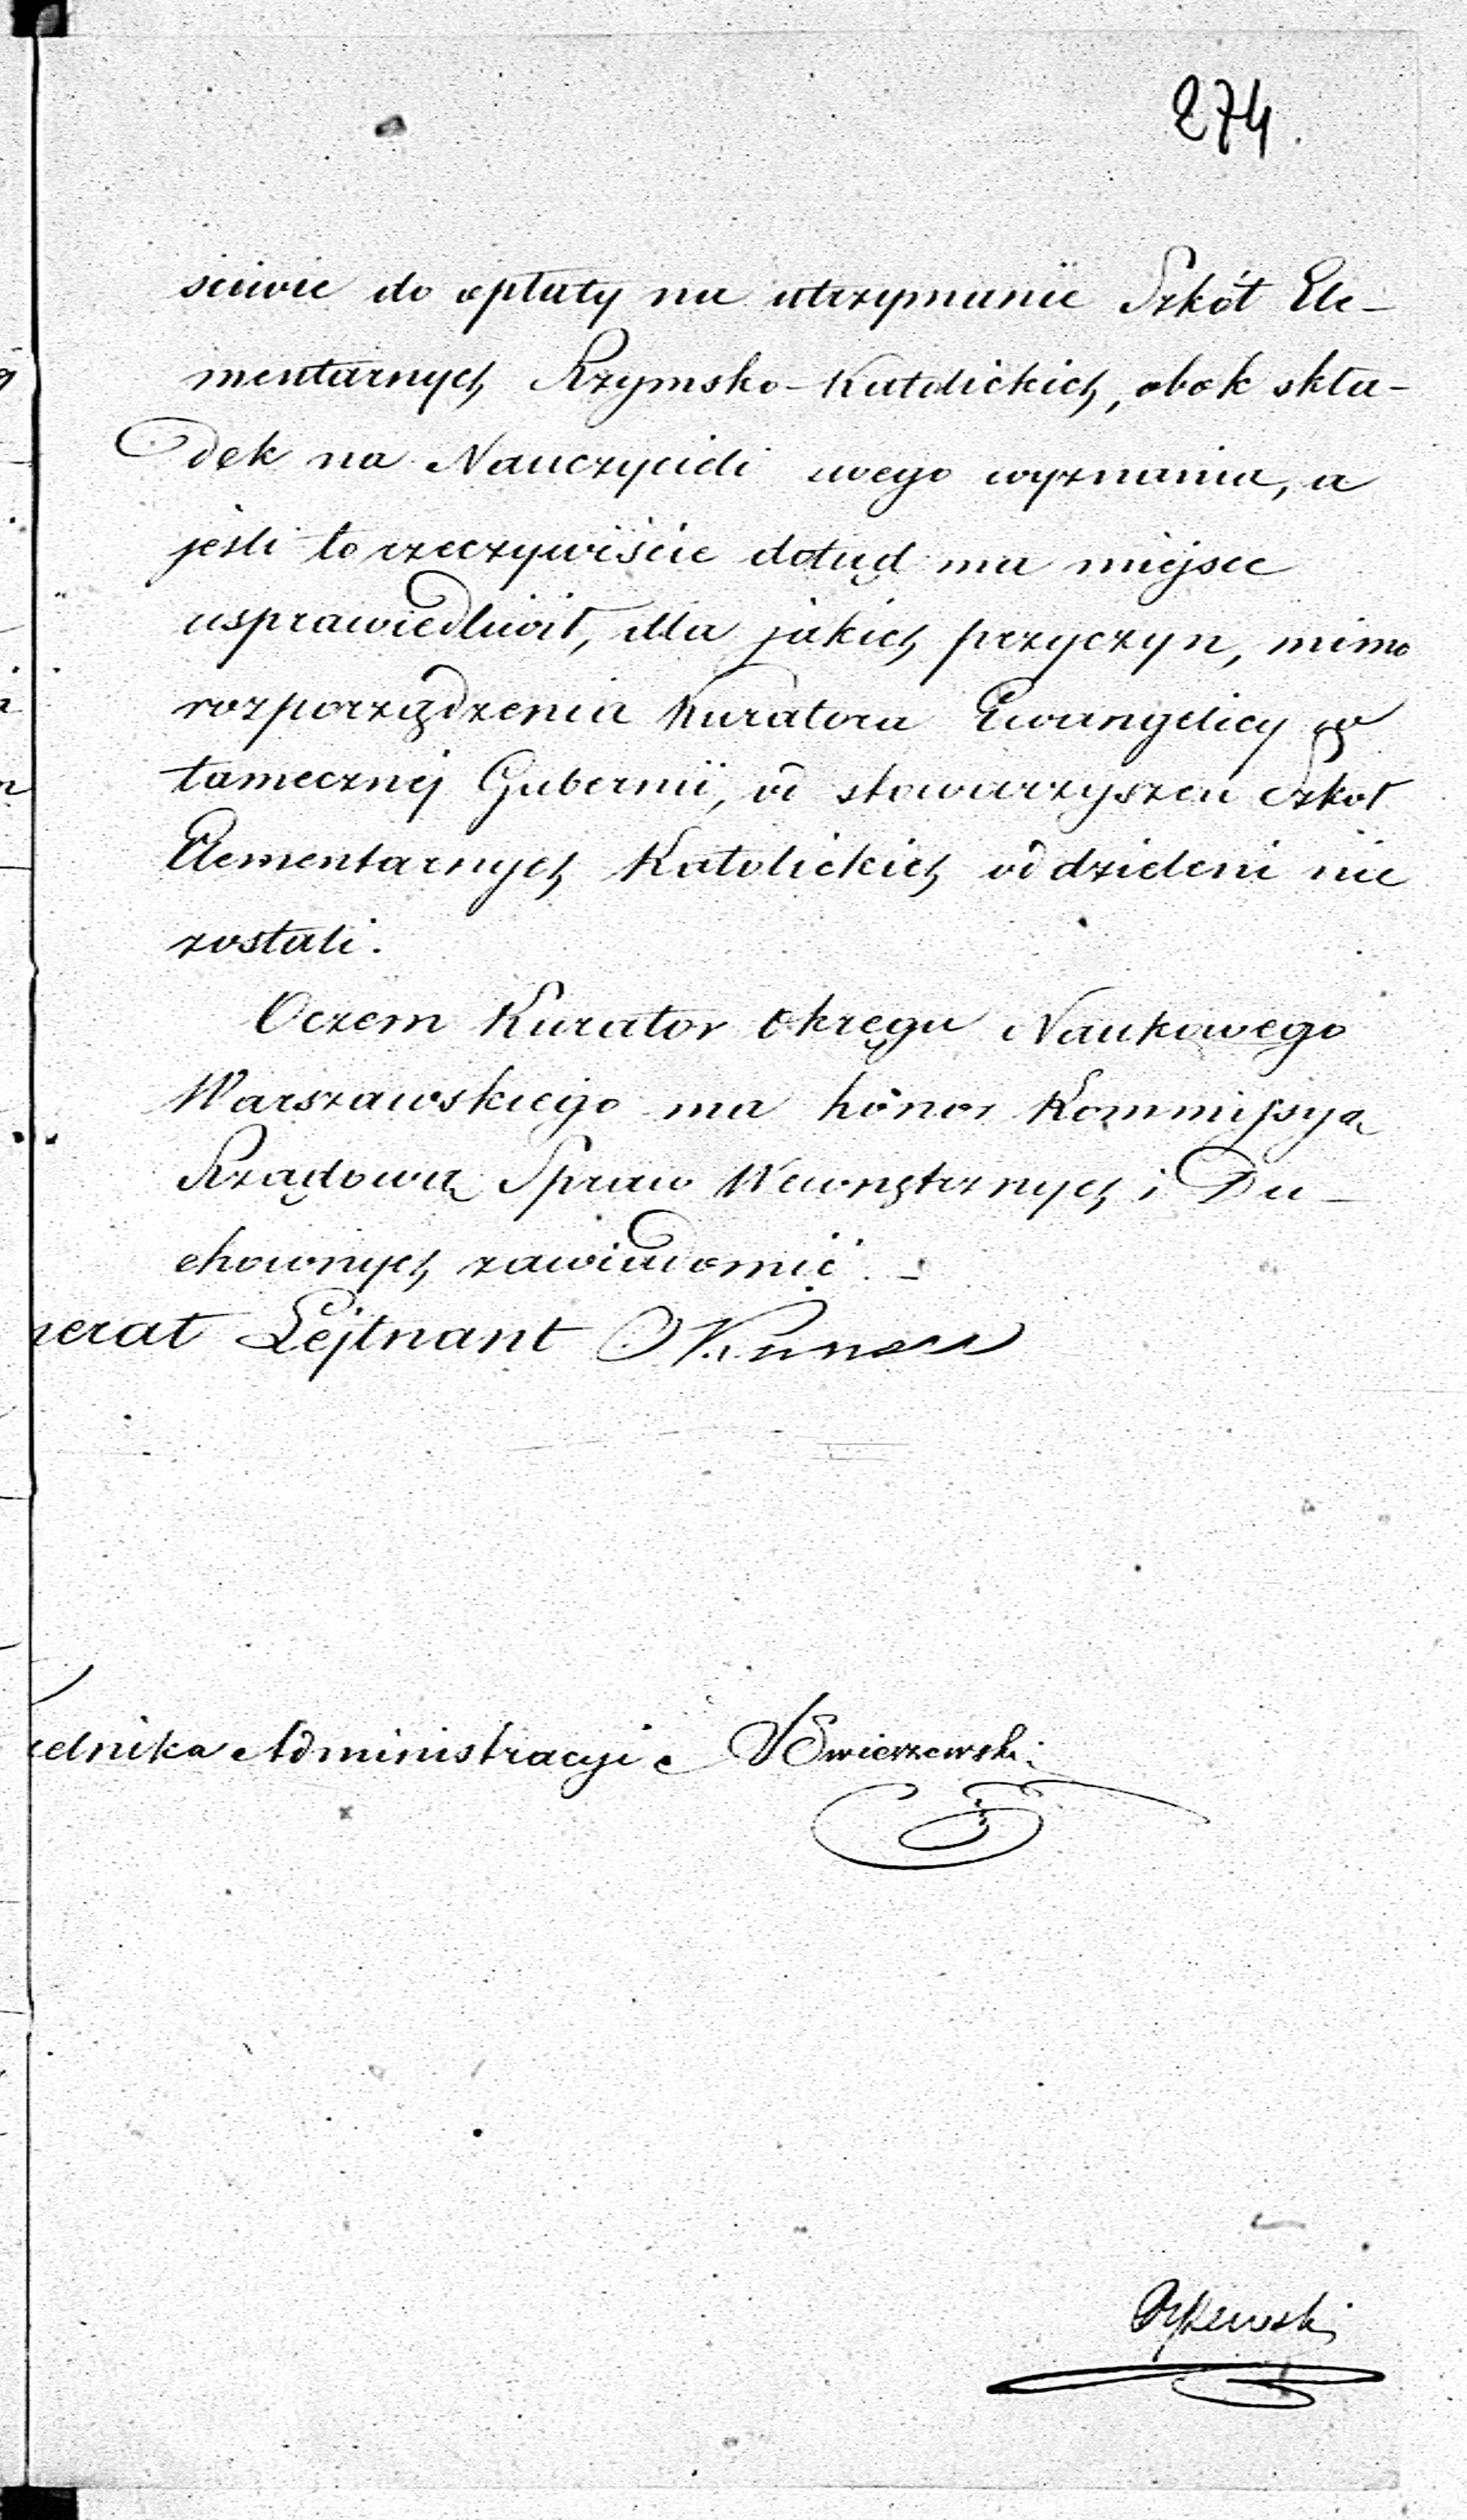 274.
ściwie do opłaty na utrzymanie Szkół Ele-
mentarnych Rzymsko-Katolickich, obok skła-
dek na Nauczycieli swego wyznania, a
jeśli to rzeczywiście dotąd ma miejsce
usprawiedliwił, dla jakich przyczyn, mimo
rozporządzenia Kuratora Ewangelicy w
tamecznej Gubernii, od stowarzyszeń Szkół
Elementarnych Katolickich oddzieleni nie
zostali.
Oczem Kurator Okręgu Naukowego
Warszawskiego ma honor Kommissyą
Rządową Spraw Wewnętrznych i Du-
chownych zawiadomić.
nerał Lejtnant
elnika Administracyi Swierzewski